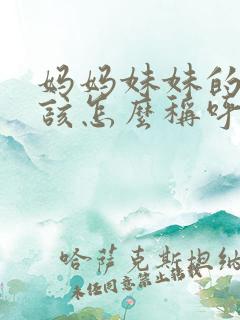 妈妈妹妹的
该怎麼稱呼
哈萨克斯抱
未经同意禁止转载